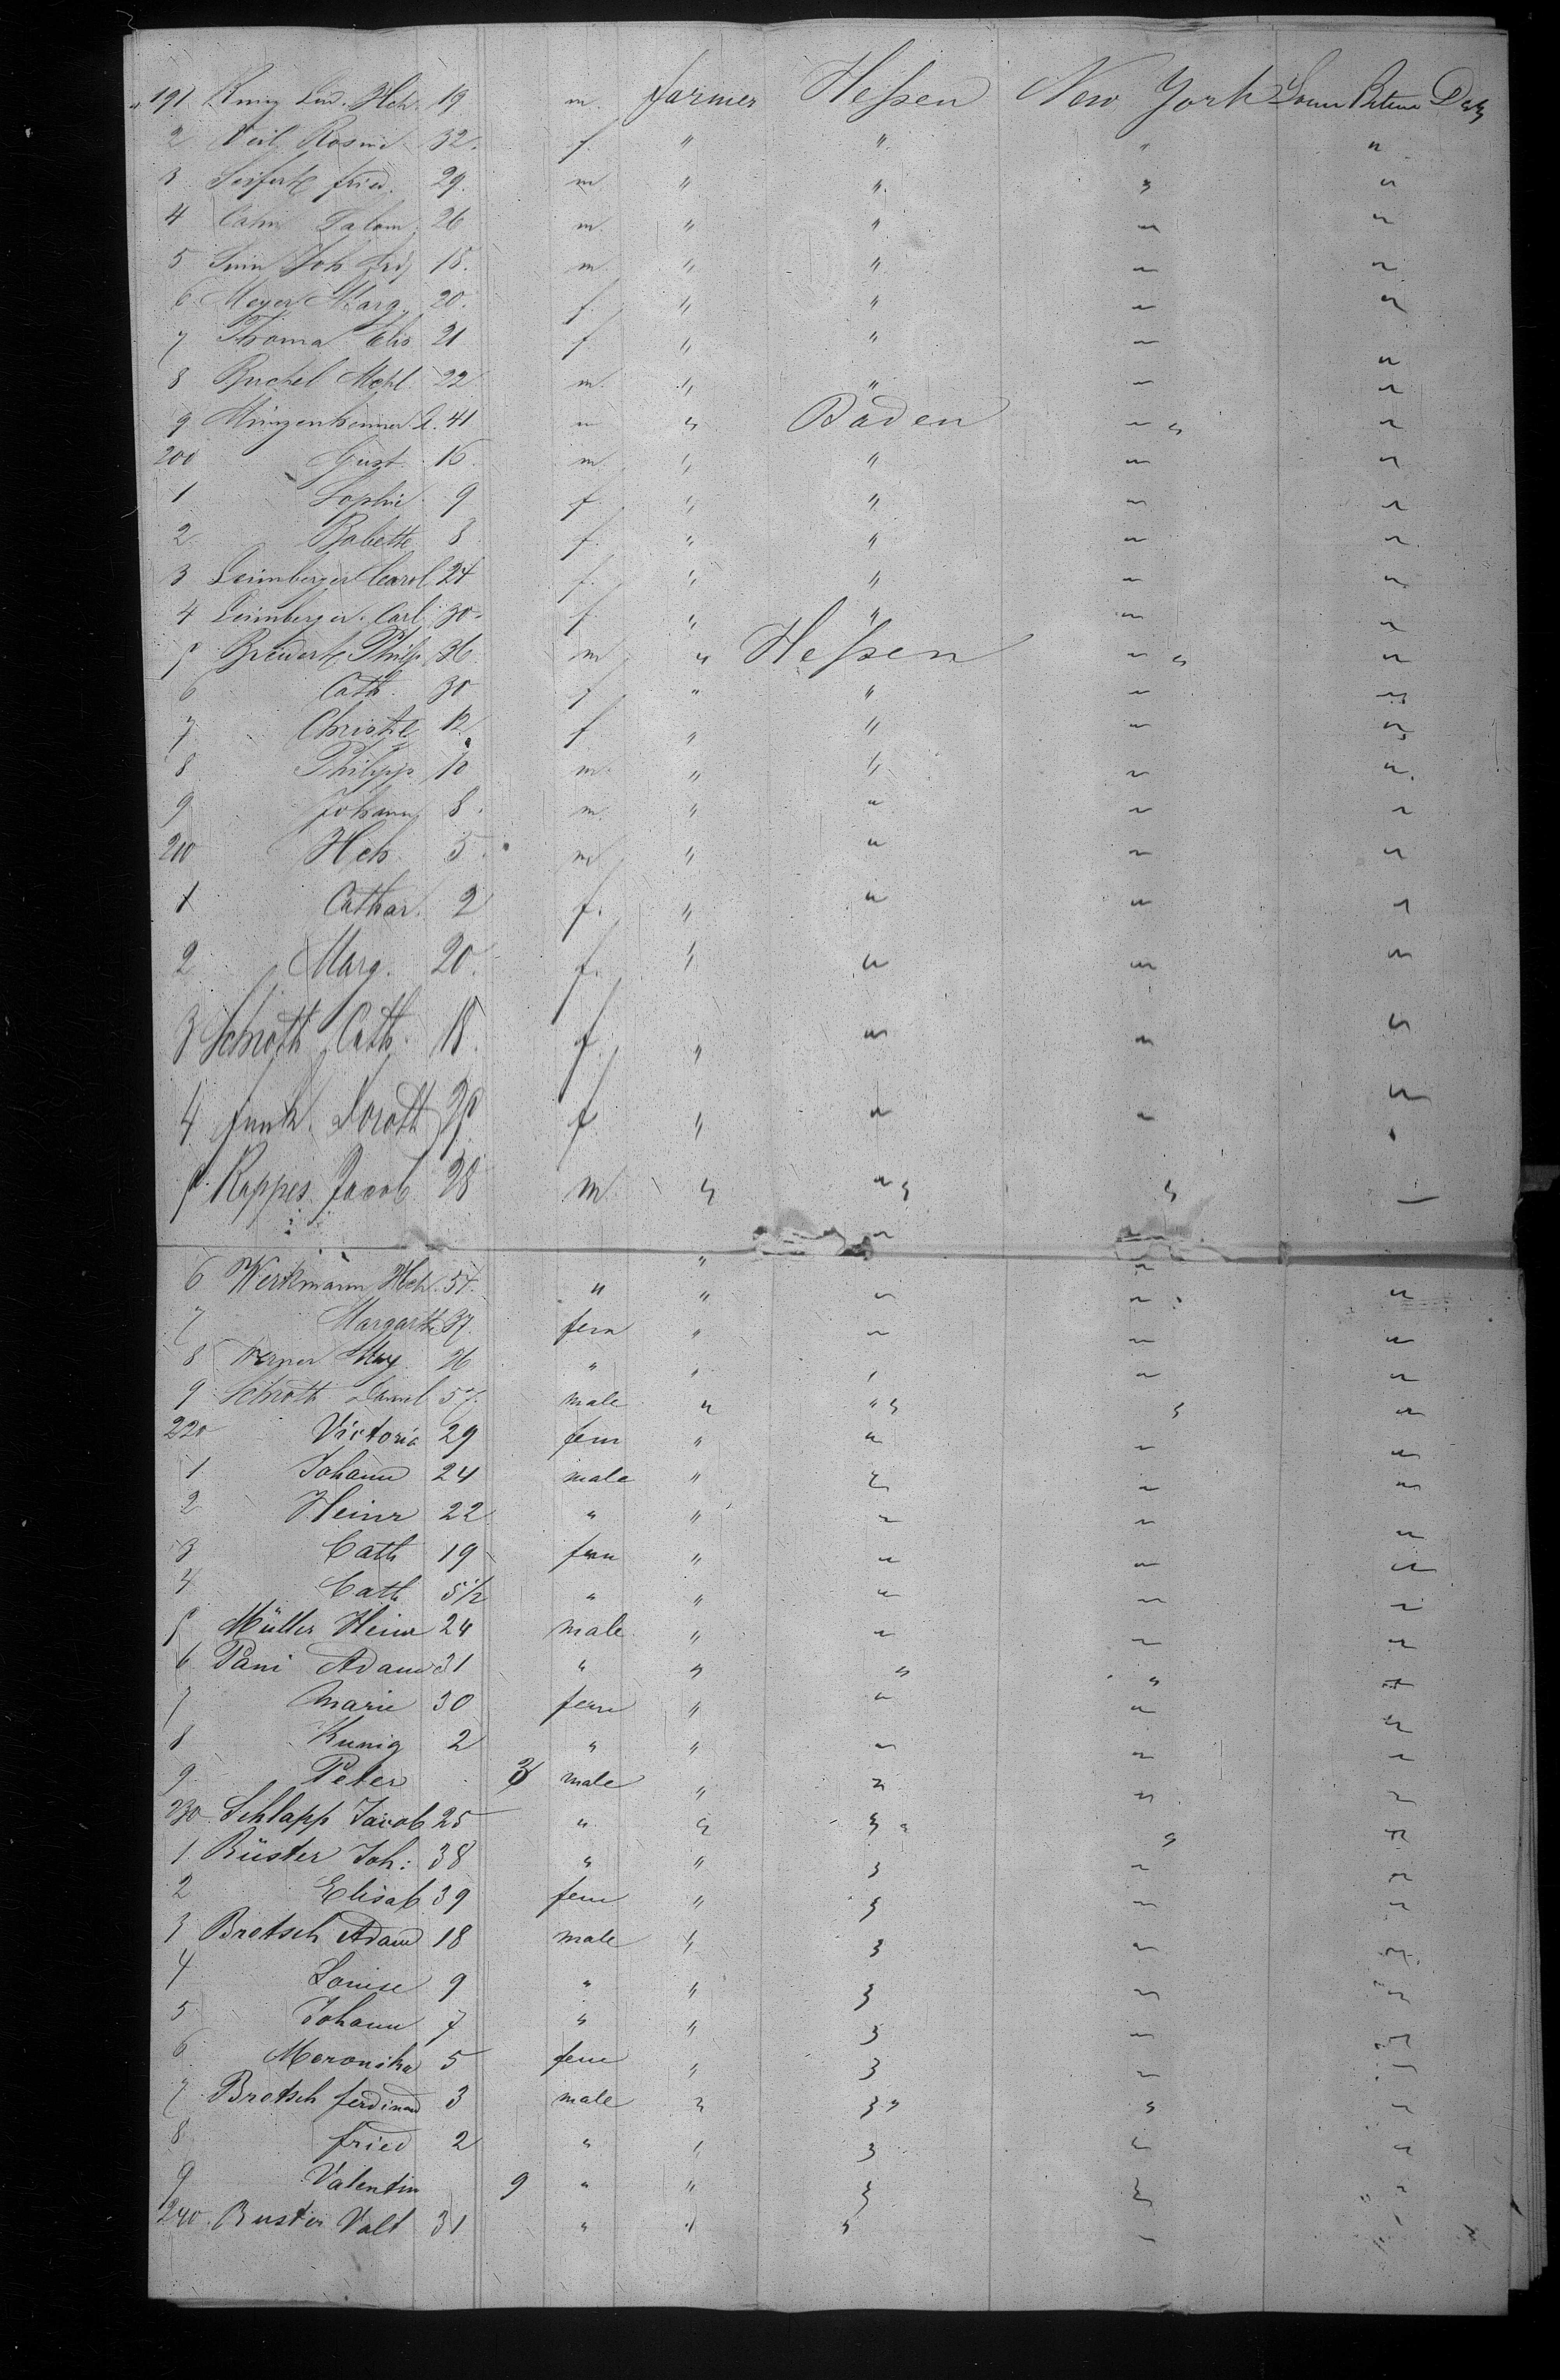 191 Hch. 19 m. farmer Heſsen New York
2 Veil Rosine 32. f. " " " "
3 Seifert fried. 29. m " " " "
4 Cahn Salom. 26 m. " " " "
5 Sinn Joh 18. m " " " "
6 Meyer Marg. 20. f. " " " "
7 Thoma Elis 21 f. " " " "
8 Ruchel Mchl 22 m. " " " "
9 41 m " Baden " "
200 Gust. 16. m. " " " "
1 Sophie 9 f. " " " "
2 Babette 8 f. " " " "
3 Leimberger Carol 24 f. " " " "
4 Leimberger Carl 30 f. " " " "
5 Philip 36 m " Heſsen " "
6 Cath. 30 f " " " "
7 Christe 12 f " " " "
8 Philipp 10 m. " " " "
9 Johann 8. m. " " " "
210 Hch 5. m " " " "
1 Cathar. 2 f. " " " "
2 Marg. 20. f. " " " "
3 Schroth Cath. 18. f. " " " "
4 funk. Doroth f " " " "
5 Rappes Jacob 28 m " " "
6 Werkmann Hch. 54. " " " " "
7 Margarth 37. fem " " " "
8 Werner 26 " " " " "
9 Schroth Daniel 57. male " " " "
220 Victoria 29 fem " " " "
1 Johann 24 male " " " "
2 Heinr 22 " " " " "
3 Cath 19 fem " " " "
4 Cath 5 1/2 " " " " "
5 Müller Heinr 24 male " " " "
6 Pani Adam 31 " " " " "
7 Marie 30 fem " " " "
8 Kunig 2 " " " " "
9 Peter 3 male " " " "
230 Schlapp Jacob 25 " " " " "
1 Büster Joh: 38 " " " " "
2 Elisab 39 fem " " " "
3 Brotsch Adam 18 male " " " "
4 Louise 9 " " " " "
5 Johann 7 " " " " "
6 Meronika 5 fem " " " "
7 Brotsch ferdinand 3 male " " " "
8 fried 2 " " " " "
9 Valentin 9 " " " " "
240 Buster Valt 31 " " " " "